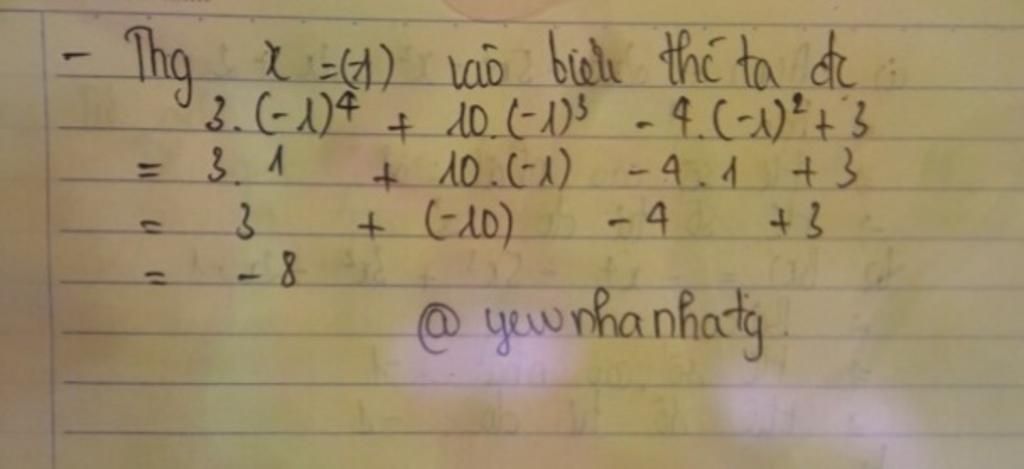 - Thg x = (-1) vào biểu thć ta đc
3. (-1)⁴ + 10. (-1)³ - 4. (-1)² + 3
= 3. 1 + 10. (-1) - 4. 1 + 3
= 3 + (-10) - 4 + 3
= - 8
@ yewnhanhatg